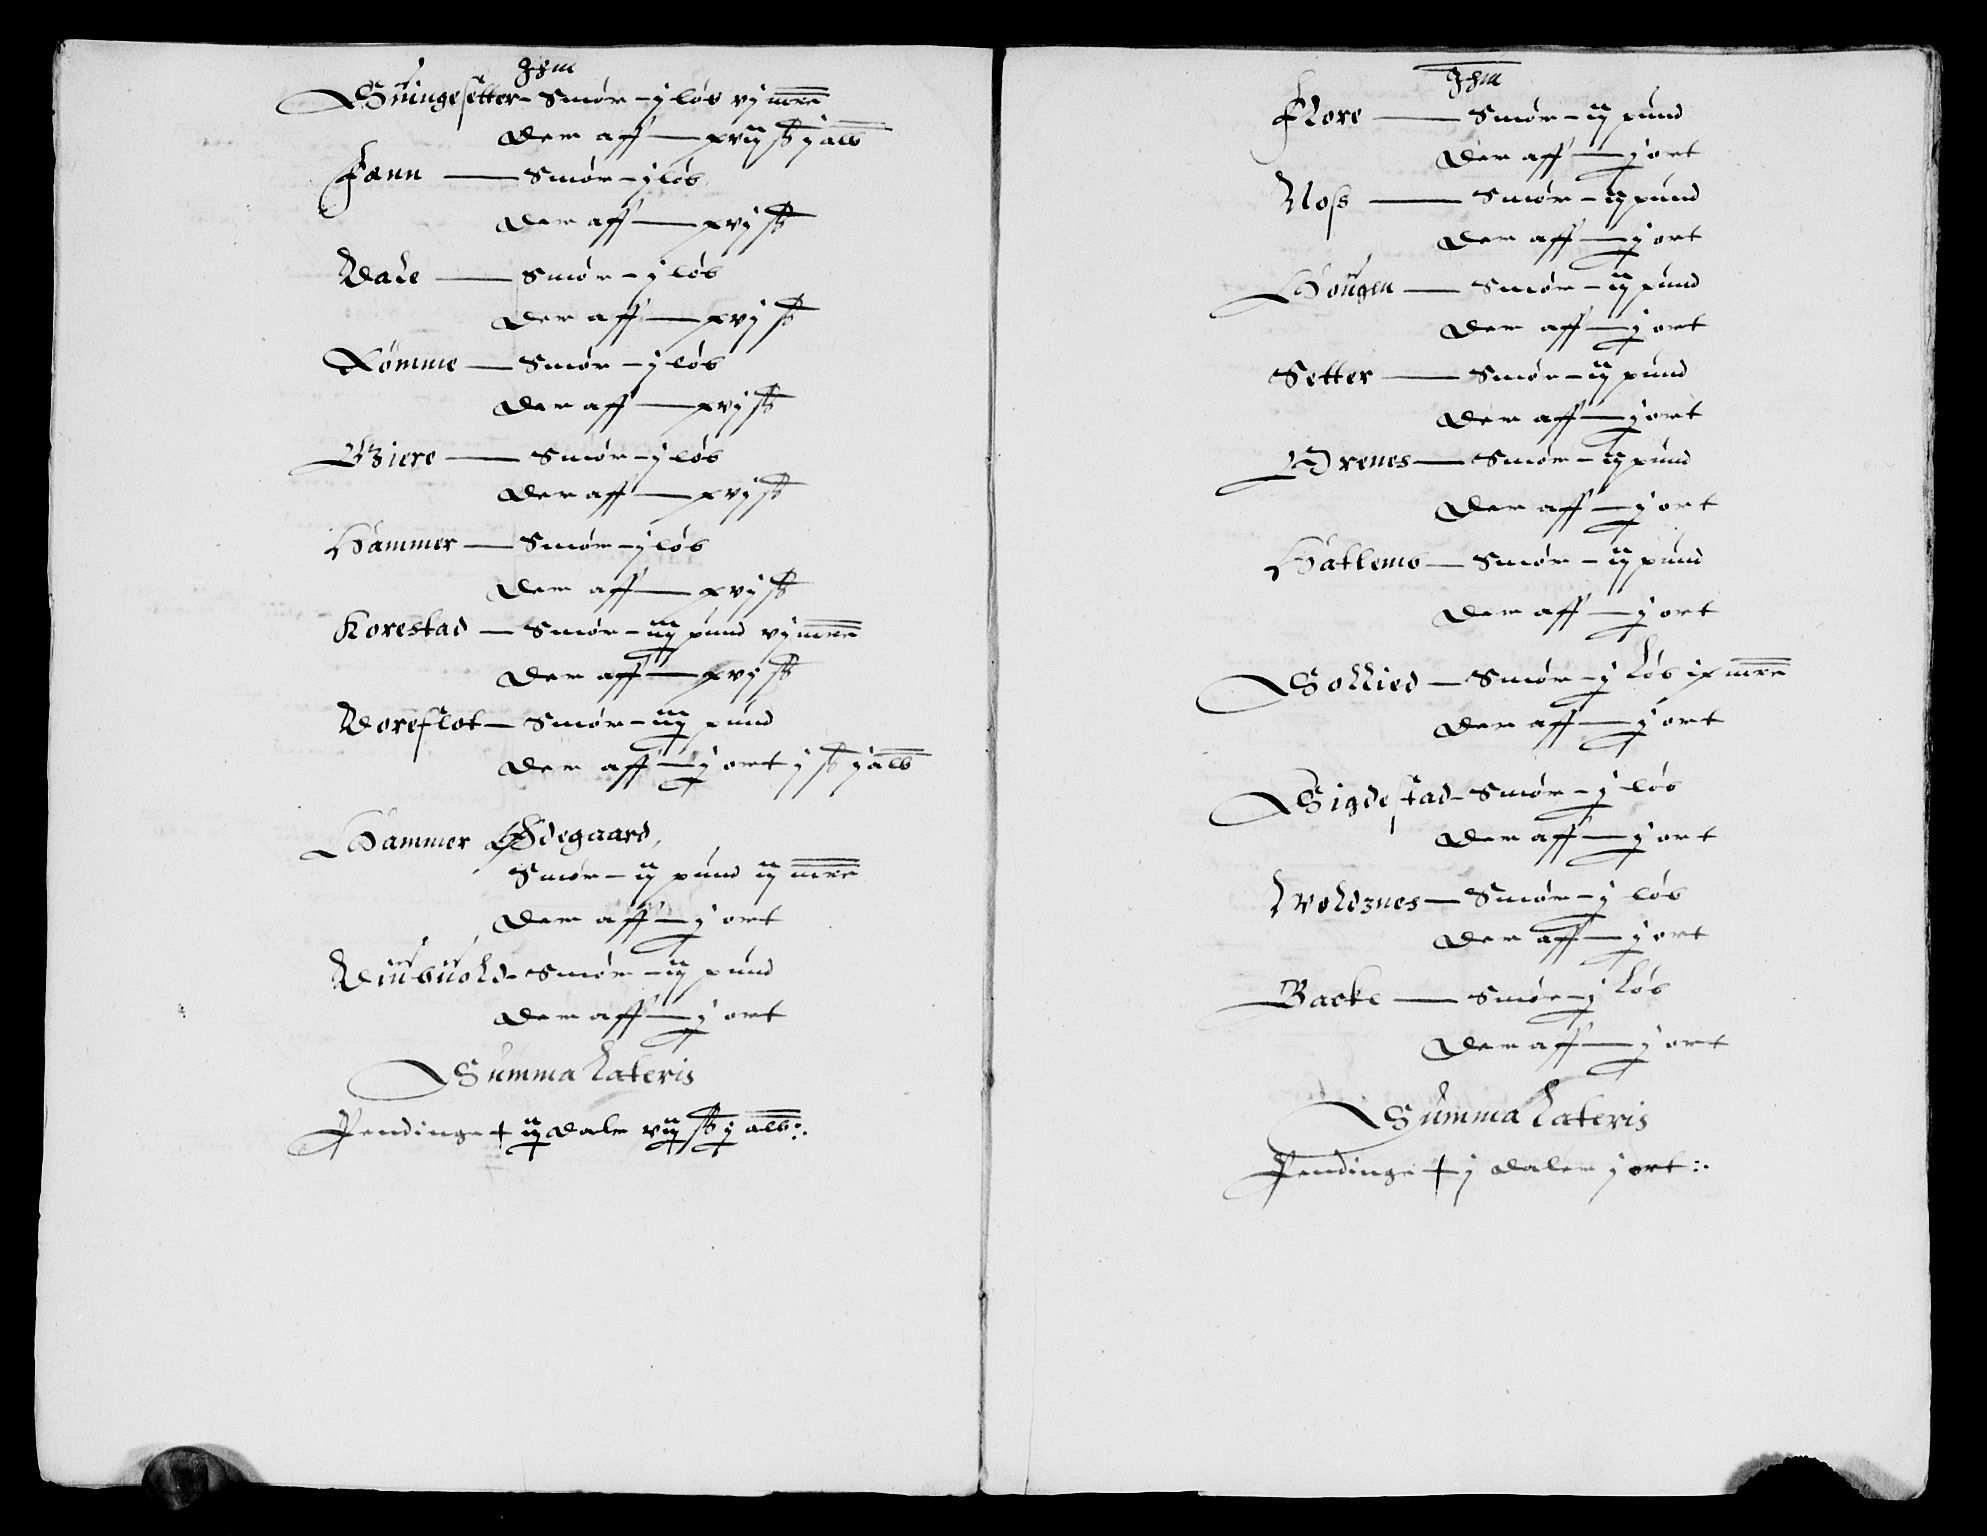 Jtem
Suingesetter - Smør - j løb vj mrk
Der aff — xviij ß j alb
Fann — Smør - j løb
Der aff — xvj ß
Dale — Smør - j løb
Der aff — xvj ß
Rømme — Smør - j løb
Der aff — xvj ß
Giere — Smør - j løb
Der aff — xvj ß
Hammer — Smør - j løb
Der aff — xvj ß
Korestad — Smør - iij pund vj mrk
Der aff — xvj ß
Voreflot — Smør - iij pund
Der aff — j ort j ß j alb
Hammer Ødegaard,
Smør - ij pund ij mrk
Der aff — j ort
Smør - ij pund
Der aff — j ort
Summa Lateris
Pendinge + ij daler viij ß j alb :.
Jtem
Flore — Smør - ij pund
Der aff — j ort
Noss — Smør - ij pund
Der aff — j ort
Hougen — Smør - ij pund
Der aff — j ort
Setter — Smør - ij pund
Der aff — j ort
Drenes — Smør - ij pund
Der aff — j ort
Hatlemb — Smør - ij pund
Der aff — j ort
Sollied — Smør - j løb ix mrk
Der aff — j ort
Sigdestad - Smør - j løb
Der aff — j ort
Woldznes — Smør - j løb
Der aff — j ort
Backe — Smør - j løb
Der aff — j ort
Summa Lateris
Pendinge + j daler j ort :.